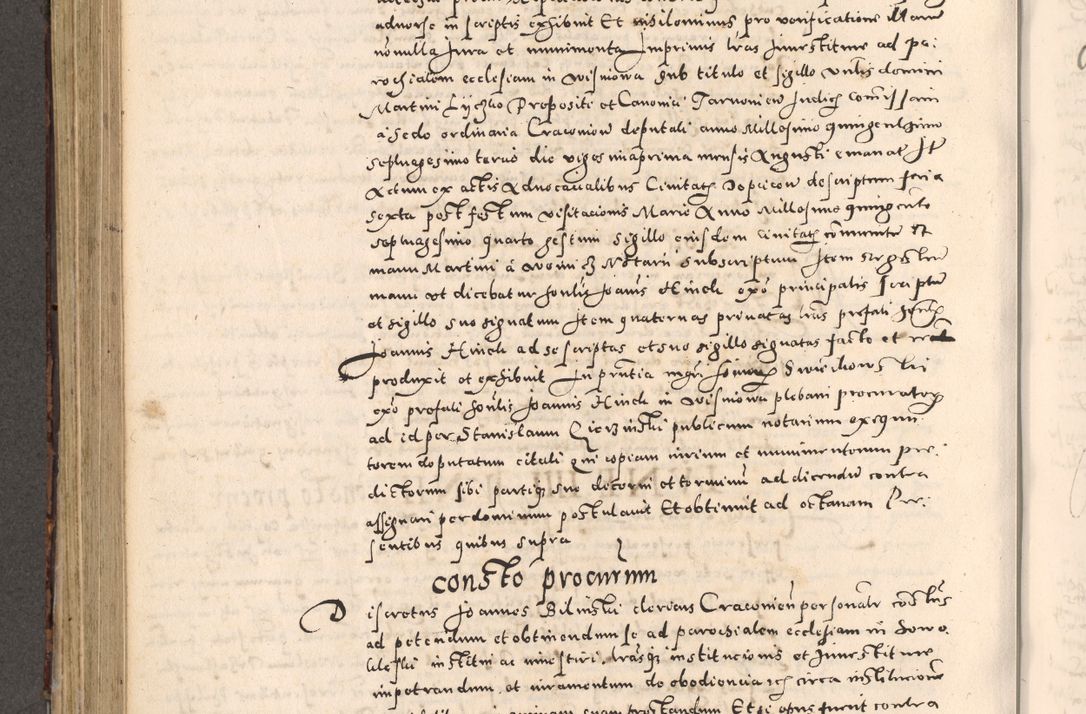 aduerse in scriptis exhibuit Et nihilominus pro verificatione
nonnulla Iura et munimenta Inprimis lras Inuestiture ad pa-
rochialem ecclesiam in Wisniowa sub titulo et sigillo Vnlis domini
Martini Praepositi et Canonici Tarnouien Iudicis comissarii
a Sede ordinaria Cracouien deputati anno Millesimo quingentesimo
septuagesimo tertio die vigesimaprima mensis Augusti emanat It
Actum ex actis Aduocatialibus Ciuitatis descriptum feria
sexta post festum visitacionis Marie Anno Millesimo quingento
septuagesimo quarto gestum sigillo eiusdem ciuitatis communite et
manu Martini a Notarii subscriptum Item
manu vt dicebatur honlis Ioanis principalis scriptu
et sigillo suo signatum Item quaternas priuatas lras prefati
Ioannis ad se scriptas et suo sigillo signatas facto et
produxit et exhibuit In pntia mgri
prefati honlis Ioannis in Wisniowa plebani procuratoris
ad id per Stanislaum publicum notarium exequu-
torem deputatum citati qui copiam iurium et munimentorum pre-
dictorum sibi partiq sue decerni et terminu ad dicendu contra
assignari per dominum postulauit Et obtinuit ad octauam Pre-
sentibus quibus supra
Consto procurum
Discretus Ioannes Bilinski clericus Cracouien personalr costus
ad petendum et obtinendum se ad parochialem ecclesiam in
institui ac inuestiri lrasq institucionis et Inuestiture
impetrandum et iuramentum de obediencia circa institucione
prestandum Et si opus fuerit contra